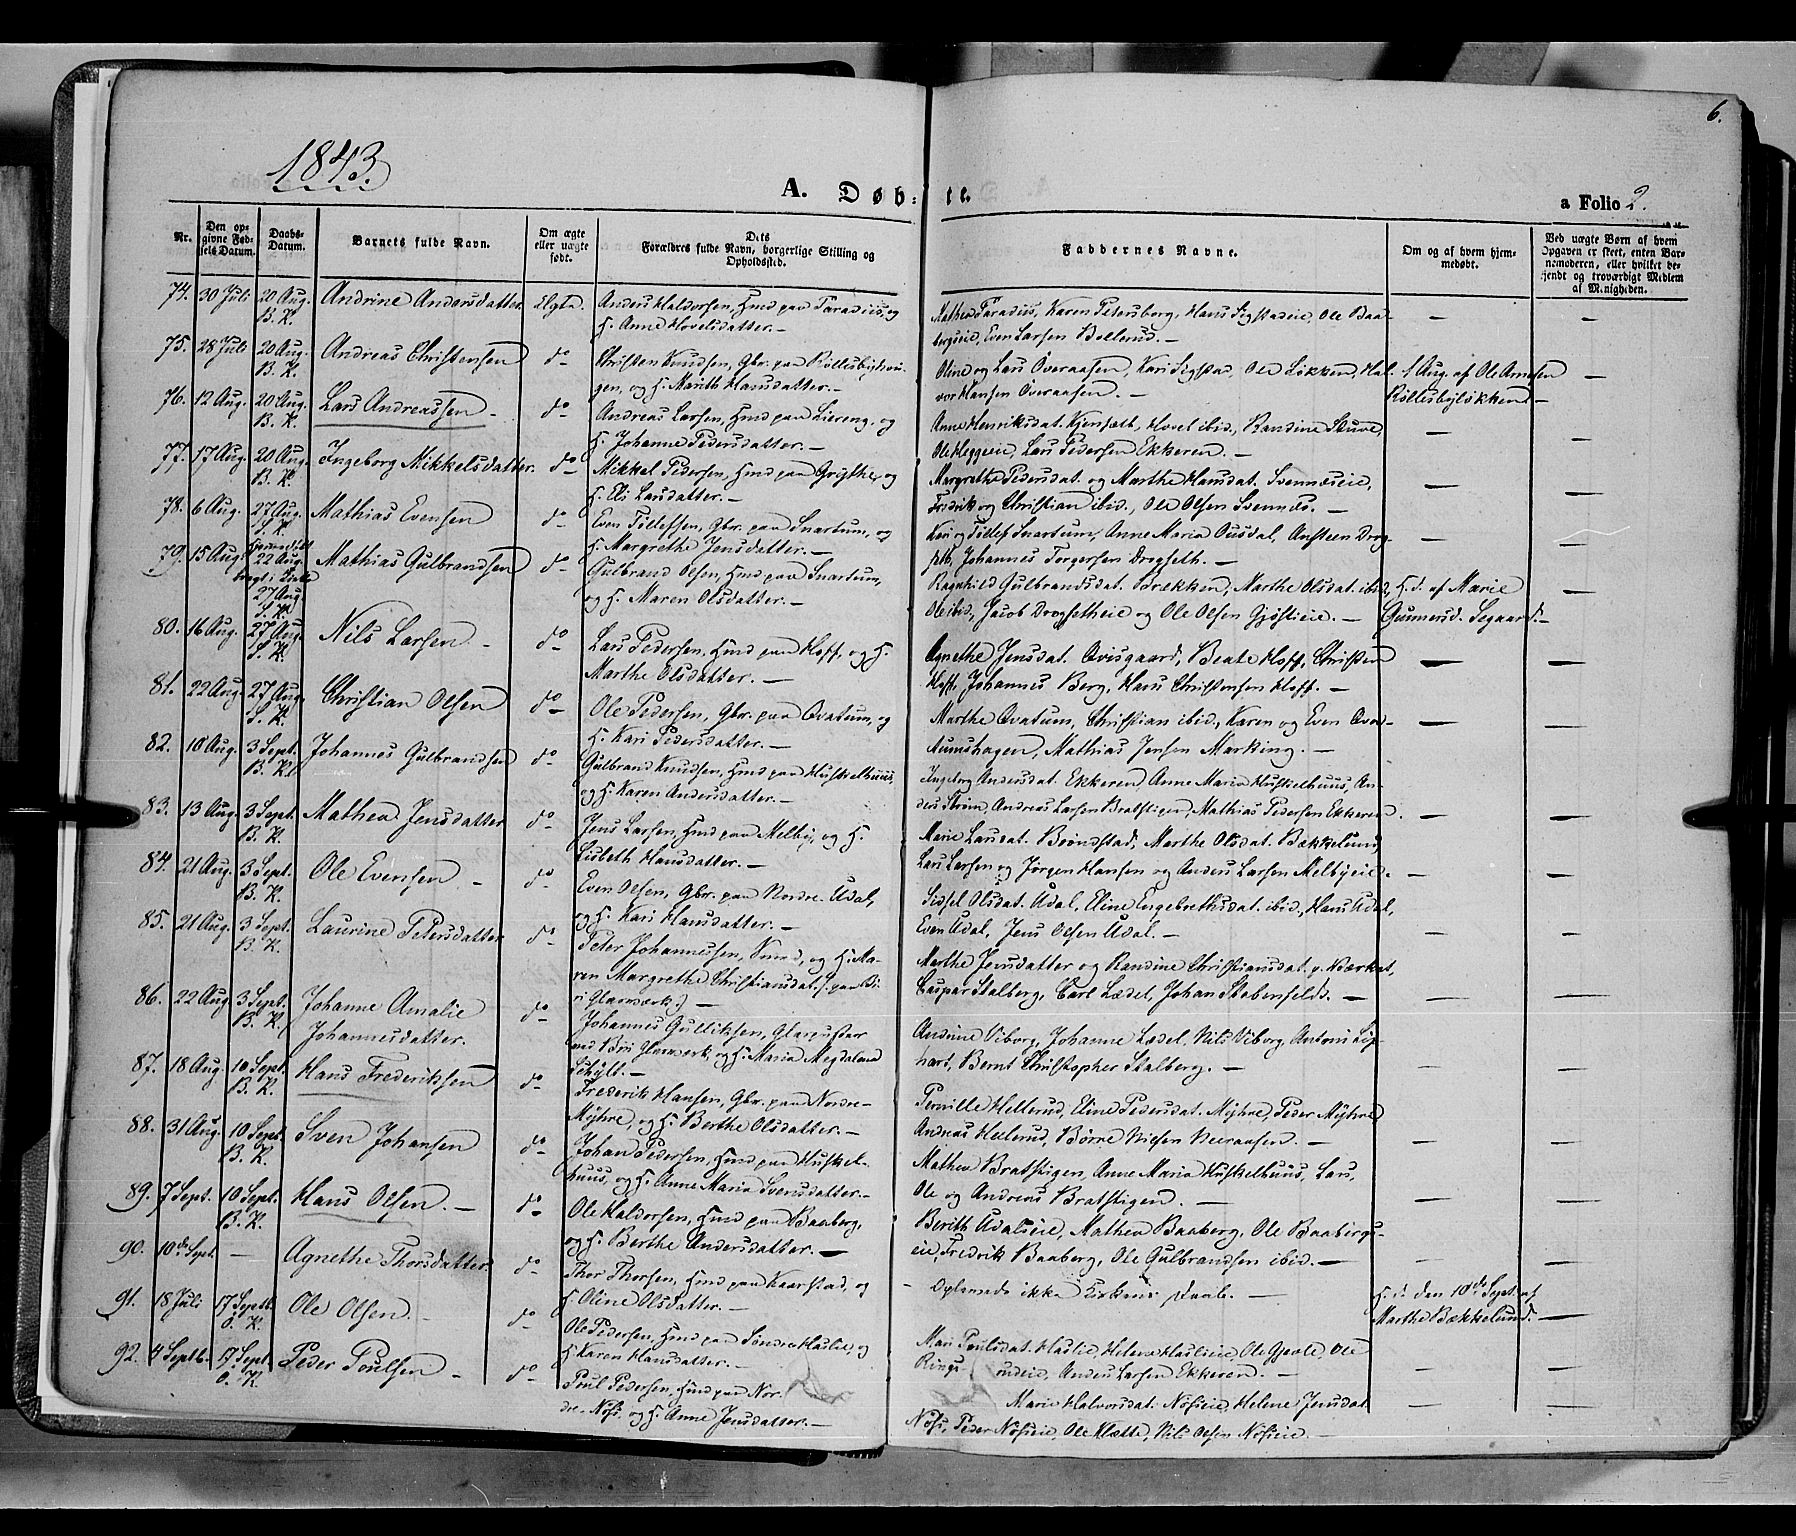 6.
1843.
A. Døb= te. a Folio 2.
Nr. Den opgivne Fødsels Datum. Daabs-Datum. Barnets fulde Navn. Om ægte eller uægte født. Dets Forældres fulde Navn, borgerlige Stilling og Opholdssted. Faddernes Navne. Om og af hvem hjemmedøbt. Ved uægte Børn af hvem Opgaven er skeet, enten Barnemoderen, eller hvilket bekjendt og troværdigt Medlem af Menigheden.
74. 30 Juli 20 Aug. B. K. Andrine Andersdatter Ægte. Anders Haldorsen, Hmd paa Paradiis, og
H. Anne Hovelsdatter. —
Mathea Paradiis, Karen Petersborg, Hans Sigstadeie, Ole Baa-
bergseie, Even Larsen Bollerud. — — —
75. 28 Juli 20 Aug. B. K. Andreas Christensen do Christen Knudsen, Gbr. paa
gen, og H. Marith Hansdatter. —
Oline og Lars Overaasen, Kari Sigstad, Ole Løkken, Hal-
vor Hansen Overaasen. — 1 Aug. af Ole Arnesen
Røllesbyløkken — —
76. 12 Aug. 20 Aug. B. K. Lars Andreassen — do Andreas Larsen, Hmd paa Liereng, og
H. Johanne Pedersdatter. —
Anne Henriksdat. Kjenseth, Hovel ibid., Randine Stuve,
Ole Heggeie, Lars Pedersen Ekkeren. — — —
77. 17 Aug. 20 Aug. B. K. Ingeborg Mikkelsdatter. do Mikkel Pedersen, Hmd paa Grythe, og
H. Eli Larsdatter. —
Margrethe Pedersdat. og Marthe Hansdat. Svennæseie,
Fredrik og Christian ibid., Ole Olsen Svennes. — — —
78. 6 Aug. 27 Aug. S. K. Mathias Evensen do Even Tollefsen, Gbr. paa Snartum, og
H. Margrethe Jensdatter. —
Kari og Tollef Snartum, Anne Maria Ousdal, Ansteen Drog-
seth, Johannes Torgersen Drogseth. — — —
79. 15 Aug. Hjemmedøbt 22 Aug. bragt i Kirke 27 Aug. S. K. Mathias Gulbrandsen do Gulbrand Olsen, Hmd paa Snartum,
og H. Maren Olsdatter. —
Ragnhild Gulbrandsdat. Brækken, Marthe Olsdat. ibid,
Ole ibid, Jacob Drogsetheie og Ole Olsen Gjøstieie. — H. d. af Marie
Gunnersd. Segaard. — —
80. 16 Aug. 27 Aug. S. K. Nils Larsen — do Lars Pedersen, Hmd paa Hoff, og H.
Marthe Olsdatter. —
Agnethe Jensdat. Qvisgaard, Beate Hoff, Christen
Hoff, Johannes Berg, Hans Christensen Hoff. — — —
81. 22 Aug. 27 Aug. S. K. Christian Olsen do Ole Pedersen, Gbr. paa Qvatum, og
H. Kari Pedersdatter. —
Marthe Qvatum, Christian ibid, Karen og Even Qver-
numshagen, Mathias Jensen Marking. — — —
82. 10 Aug. 3 Sept. B. K. Johannes Gulbrandsen do Gulbrand Knudsen, Hmd paa Huskelhuus,
og H. Karen Andersdatter. —
Ingeborg Andersdat. Ekkeren, Anne Maria Huskelhuus, An-
ders Strøm, Andreas Larsen Bratstigen, Mathias Pedersen Ekkeren. — —
83. 13 Aug. 3 Sept. B. K. Mathea Jensdatter do Jens Larsen, Hmd paa Melby, og H.
Lisbeth Hansdatter. —
Marie Larsdat. Brøndstad, Marthe Olsdat. Bækkelund,
Lars Larsen og Jørgen Hansen og Anders Larsen Melbyeie. — —
84. 21 Aug. 3 Sept. B. K. Ole Evensen — do Even Olsen, Gbr. paa Nordre-Udal,
og H. Kari Hansdatter. —
Sidsel Olsdat. Udal, Eline Engebrethsdat. ibid., Hans Udal,
Even Udal, Jens Olsen Udal. — — —
85. 21 Aug. 3 Sept. B. K. Laurine Petersdatter do Peter Johannessen, Smed, og H. Ma-
ren Margrethe Christiansdat. (paa Bi-
ri Glasværk.) —
Marthe Jensdatter og Randine Christiansdat. p. Værket,
Caspar Stalberg, Carl Lædel, Johan Stabenfeldt. — — —
86. 22 Aug 3 Sept. B. K. Johanne Amalie
Johannesdatter. do Johannes Gulliksen, Glaspuster
ved Biri Glasværk, og H. Maria Magdalena
Schytt. —
Andrine Viborg, Johanne Lædel, Nils Viborg, Antoni Lip-
hart, Bernt Christopher Stalberg. — — —
87. 18 Aug. 10 Sept. B. K. Hans Frederiksen do Frederik Hansen, Gbr. paa Nordre-
Myhre, og H. Berthe Olsdatter. —
Pernille Hellerud, Eline Pedersdat. Myhre, Peder Myhre
Andreas Hellerud, Børre Nielsen Neeraasen. — — —
88. 31 Aug. 10 Sept. B. K. Sven Johansen do Johan Pedersen, Hmd paa Huskel-
huus, og H. Anne Maria Svensdatter. —
Mathea Bratstigen, Anne Maria Huskelhuus, Lars,
Ole og Andreas Bratstigen. — — —
89. 7 Sept. 10 Sept. B. K. Hans Olsen. — do Ole Haldorsen, Hmd paa Baaberg,
og H. Berthe Andersdatter. —
Berith Udalseie, Mathea Baaberg, Ole Baabergs-
eie, Fredrik Baaberg, Ole Gulbrandsen ibid. — — —
90. 10de Sept. — Agnethe Thorsdatter do Thor Thorsen, Hmd paa Kaarstad, og
H. Oline Olsdatter. —
— Oplevede ikke Kirkens Daab. — H. d. den 10de Sept. af
Marthe Bækkelund. — —
91. 18 Juli 17 Septb. O. K. Ole Olsen. — do Ole Pedersen, Hmd paa Søndre Haslie, og
H. Karen Hansdatter. —
Mari Poulsdat. Haslie, Helene Haslieie, Ole Gjevle, Ole
Rings- rudeie, Anders Larsen Ekkeren. — — —
92. 4 Septb. 17 Sept. O. K Peder Poulsen — do Poul Pedersen, Hmd paa Nor-
dre-Nøss, og H. Anne Jensdatter. —
Marie Halvorsdat. Nøsseie, Helene Jensdat
Nøss, Peder Nøsseie, Ole Klætte, Nils Olsen Nøsseie. — — —